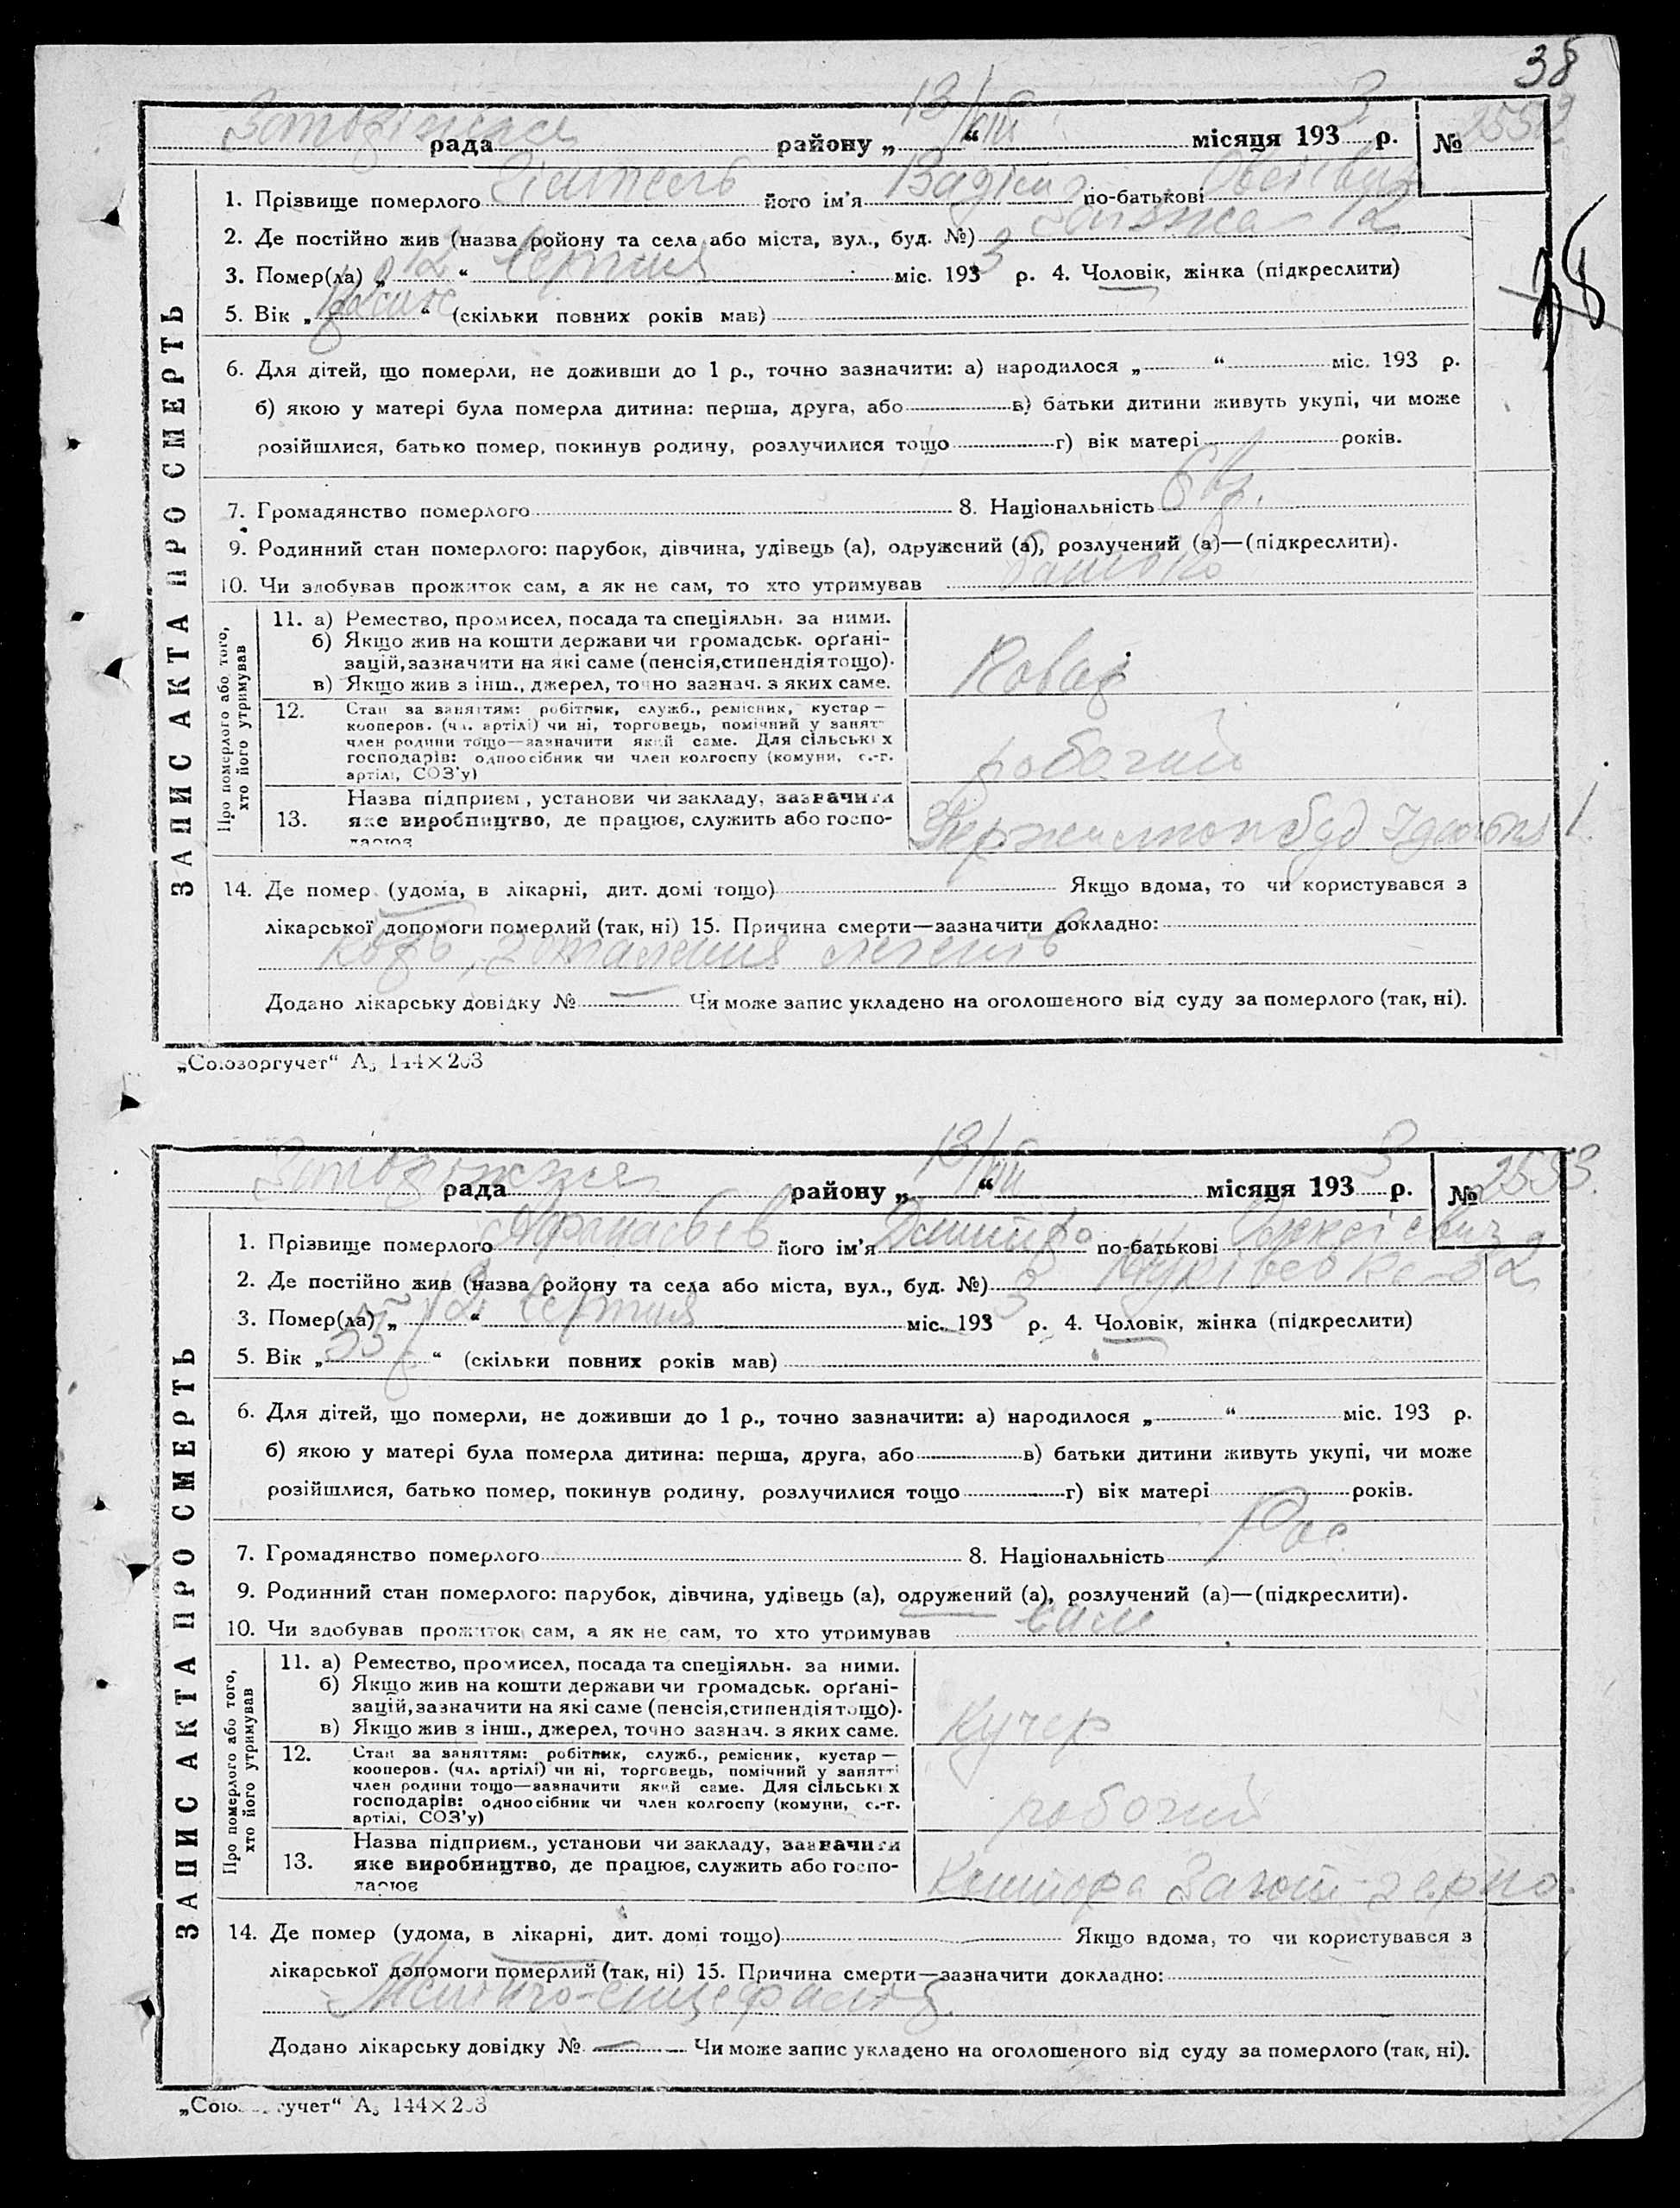 38
рада района „13/VIII“ місяця 1933 р. № 2552
1. Прізвище померлого його ім'я Вадім по-батькові
2. Де постійно жив (назва ройону та села або міста, вул., буд. №) 12
3. Помер(ла) „12“ серпня міс. 1933 р. 4. Чоловік, жінка (підкреслити)
5. Вік „ “ (скільки повних років мав)
6. Для дітей, що померли, не доживши до 1 р., точно зазначити: а) народилося „ “ міс. 193 р.
б) якою у матері була померла дитина: перша, друга, або в) батьки дитини живуть укупі, чи може
розійшлися, батько помер, покинув родину, розлучилися тощо г) вік матері років.
7. Громадянство померлого 8. Національність Євр.
9. Родинний стан померлого: парубок, дівчина, удівець (а), одружений (а), розлучений (а)—(підкреслити).
10. Чи здобував прожиток сам, а як не сам, то хто утримував батько
ЗАПИС АКТА ПРО СМЕРТЬ
Про померлого або того,
хто його утримував
11. а) Ремество, промисел, посада та спеціяльн. за ними.
б) Якщо жив на кошти держави чи громадськ. орґані-
зацій, зазначити на які саме (пенсія, стипендія тощо).
в) Якщо жив з інш., джерел, точно зазнач. з яких саме.
Коваль
12. Стан за заняттям: робітник, служб., ремісник, кустар—
кооперов. (чл. артілі) чи ні, торговець, помічний у занятт
член родини тощо—зазначити який саме. Для сільських
господарів: одноосібник чи член колгоспу (комуни, с.-г.
артілі, СОЗ'у)
робочий
13. Назва підприєм., установи чи закладу, зазначити
яке виробництво, де працює, служить або госпо-
дарює
14. Де помер (удома, в лікарні, дит. домі тощо) Якщо вдома, то чи користувався з
лікарської допомоги померлий (так, ні) 15. Причина смерти—зазначити докладно:
запалення легень
Додано лікарську довідку № — Чи може запис укладено на оголошеного від суду за померлого (так, ні).
„Союзоргучет“ А₅ 144×203
рада району „13/VIII“ місяця 1933 р. № 2553
1. Прізвище померлого Афанасьєв його ім'я Дмитро по-батькові Олексієвич
2. Де постійно жив (назва ройону та села або міста, вул., буд. №)
3. Помер(ла) „12“ серпня міс. 1933 р. 4. Чоловік, жінка (підкреслити)
5. Вік „ “ (скільки повних років мав)
6. Для дітей, що померли, не доживши до 1 р., точно зазначити: а) народилося „ “ міс. 193 р.
б) якою у матері була померла дитина: перша, друга, або в) батьки дитини живуть укупі, чи може
розійшлися, батько помер, покинув родину, розлучилися тощо г) вік матері років.
7. Громадянство померлого 8. Національність Рос.
9. Родинний стан померлого: парубок, дівчина, удівець (а), одружений (а), розлучений (а)—(підкреслити).
10. Чи здобував прожиток сам, а як не сам, то хто утримував сам
ЗАПИС АКТА ПРО СМЕРТЬ
Про померлого або того,
хто його утримував
11. а) Ремество, промисел, посада та спеціяльн. за ними.
б) Якщо жив на кошти держави чи громадськ. орґані-
зацій, зазначити на які саме (пенсія, стипендія тощо).
в) Якщо жив з інш., джерел, точно зазнач. з яких саме.
кучер
12. Стан за заняттям: робітник, служб., ремісник, кустар—
кооперов. (чл. артілі) чи ні, торговець, помічний у занятті
член родини тощо—зазначити який саме. Для сільських
господарів: одноосібник чи член колгоспу (комуни, с.-г.
артілі, СОЗ'у)
робочий
13. Назва підприєм., установи чи закладу, зазначити
яке виробництво, де працює, служить або госпо-
дарює
Контора Загот-зерно.
14. Де помер (удома, в лікарні, дит. домі тощо) Якщо вдома, то чи користувався з
лікарської допомоги померлий (так, ні) 15. Причина смерти—зазначити докладно:
Додано лікарську довідку № — Чи може запис укладено на оголошеного від суду за померлого (так, ні).
„Союзоргучет“ А₅ 144×203